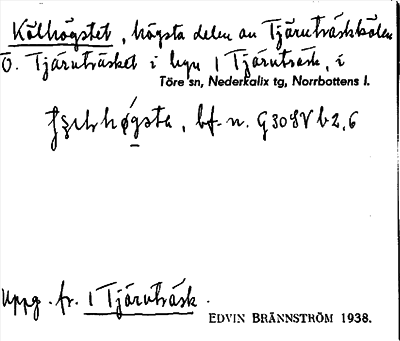 Kölhögstet, högsta delen av Tjärnträskkölen
Ö. Tjärnträsket i byn 1 Tjärnträsk, i
Töre sn, Nederkalix tg, Norrbottens l.
bf. n. G 30 SV b 2, 6
Uppg. fr. 1 Tjärnträsk.
EDVIN BRÄNNSTRÖM 1938.